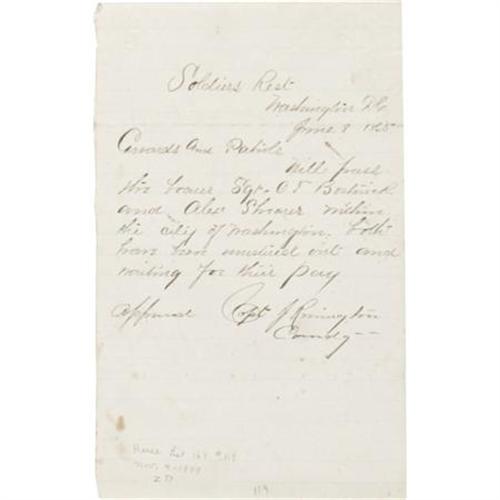 Soldiers Rest
Washington D.C.
June 8 1865
Guards and Patrols
Will pass
the bearer Sgt. C T Bostwick
and Alex Shearer within
the city of Washington. both
have been mustered out and
waiting for their pay
approved Capt J Rimington
Comdg
119